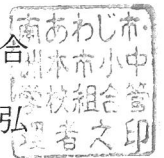 合
弘
南あわじ市・
洲本市小中
学校組合管
理者之印